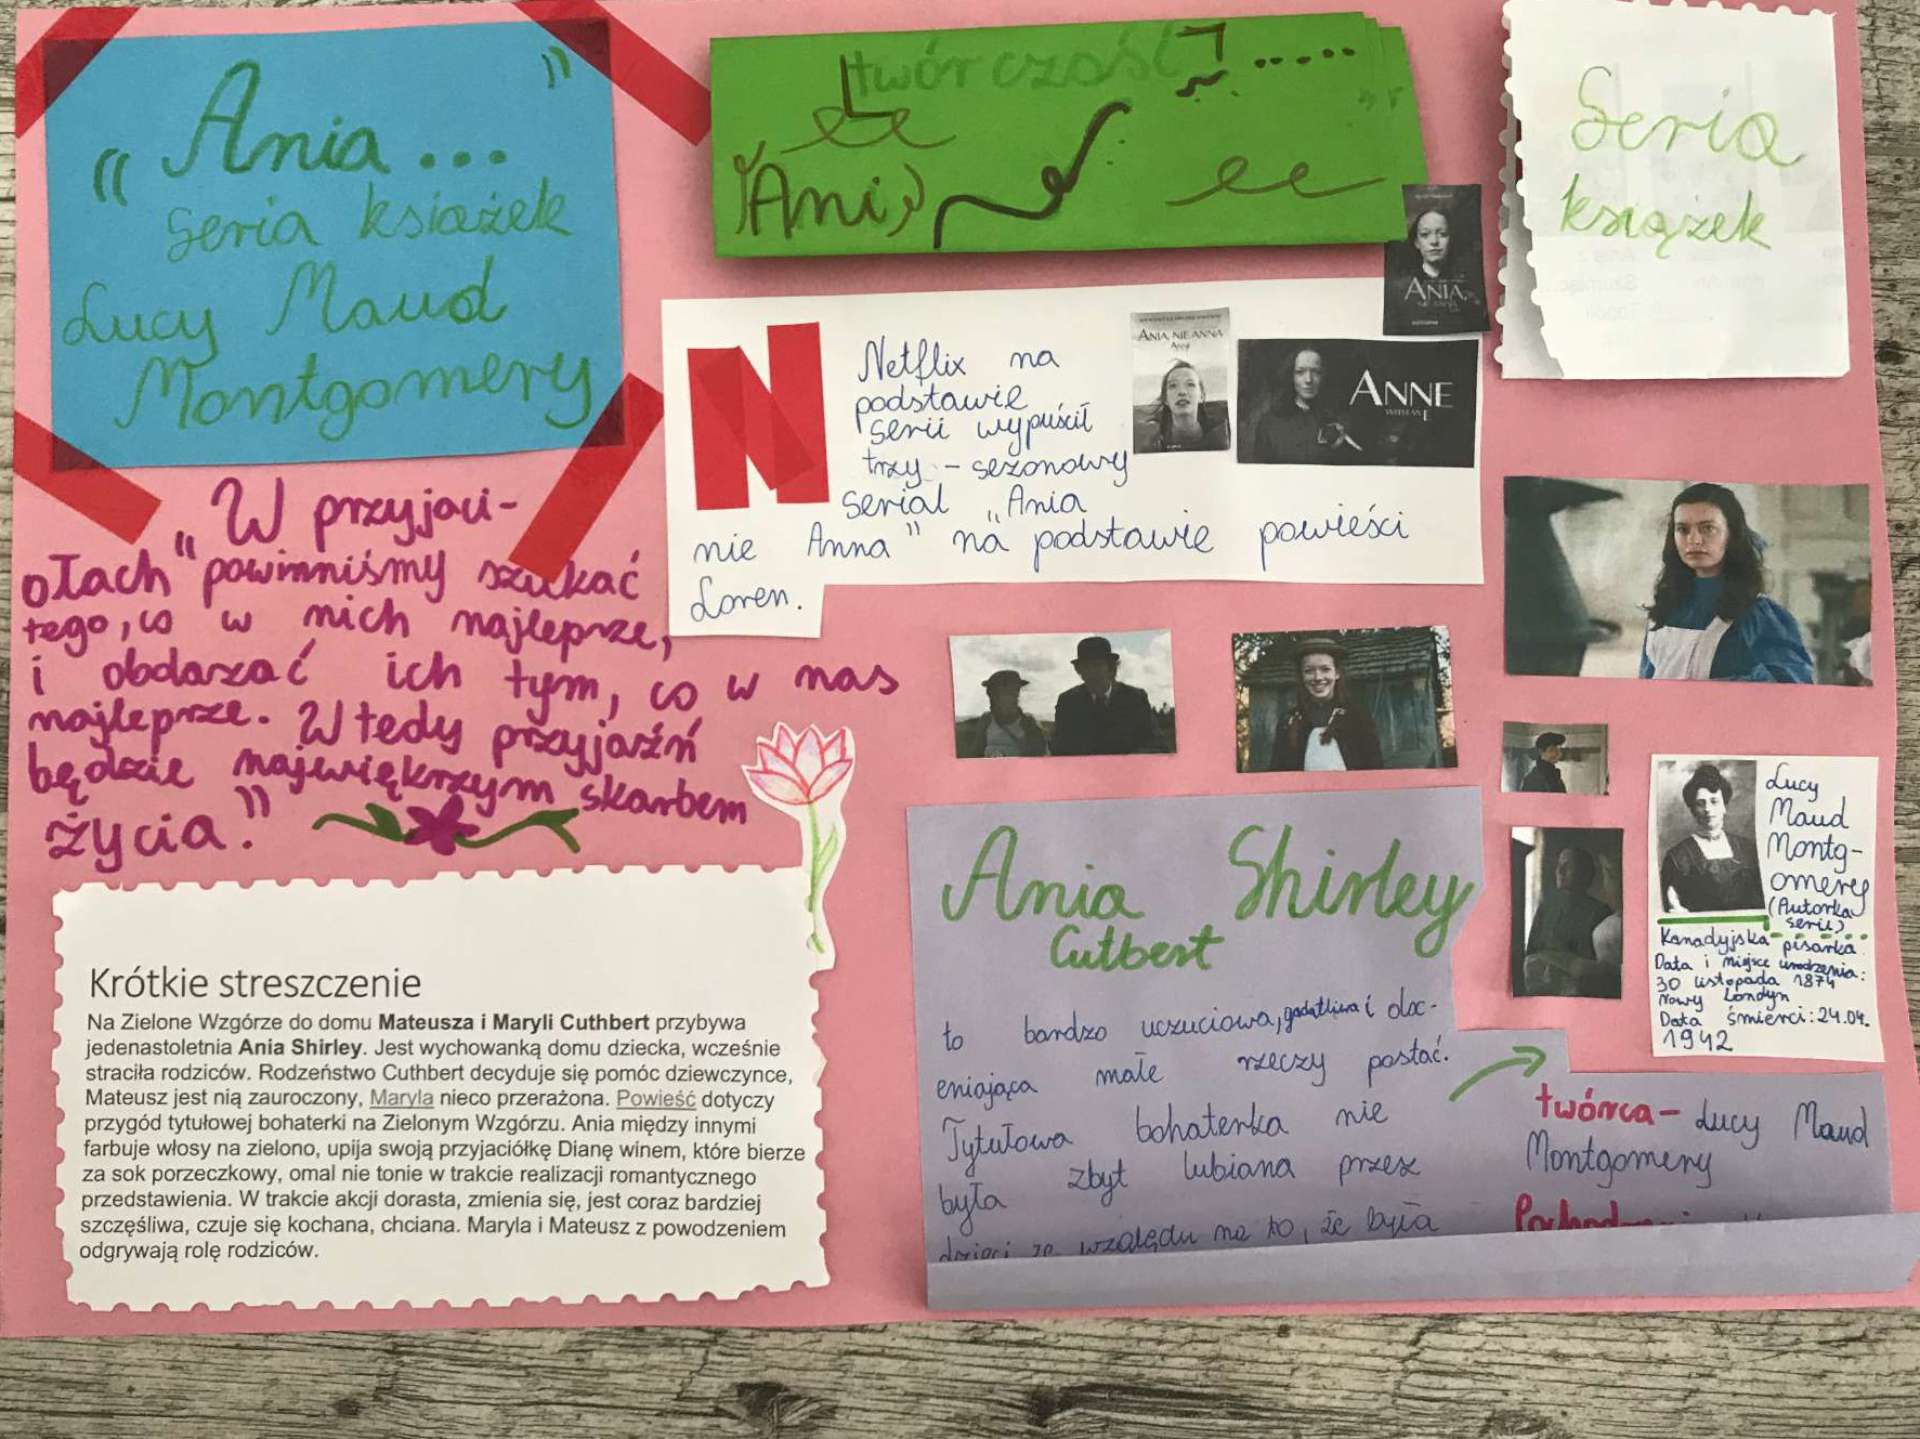 "Ania..."
seria książek
Lucy Maud
Montgomery
twórczość .....
Ani
Seria
książek
N
Netflix na
podstawie
serii wypuścił
trzy-sezonowy
serial "Ania
nie Anna" na podstawie powieści
Loren.
ANIA, NIE ANNA
ANNE
ANIA,
"W przyjaci-
ołach powinniśmy szukać
tego, co w nich najleprze,
i obdarzać ich tym, co w nas
najleprze. Wtedy przyjaźń
będzie największym skarbem
życia."
Krótkie streszczenie
Na Zielone Wzgórze do domu Mateusza i Maryli Cuthbert przybywa
jedenastoletnia Ania Shirley. Jest wychowanką domu dziecka, wcześnie
straciła rodziców. Rodzeństwo Cuthbert decyduje się pomóc dziewczynce,
Mateusz jest nią zauroczony, Maryla nieco przerażona. Powieść dotyczy
przygód tytułowej bohaterki na Zielonym Wzgórzu. Ania między innymi
farbuje włosy na zielono, upija swoją przyjaciółkę Dianę winem, które bierze
za sok porzeczkowy, omal nie tonie w trakcie realizacji romantycznego
przedstawienia. W trakcie akcji dorasta, zmienia się, jest coraz bardziej
szczęśliwa, czuje się kochana, chciana. Maryla i Mateusz z powodzeniem
odgrywają rolę rodziców.
Ania Shirley
Cutbert
to bardzo uczuciowa, gadatliwa i doc-
eniająca małe rzeczy postać.
Tytułowa bohaterka nie
była zbyt lubiana przez
dzieci ze względu na to, że była
twórca - Lucy Maud
Montgomery
Lucy
Maud
Montg-
omery
(Autorka
serii)
Kanadyjska pisarka.
Data i miejsce urodzenia:
30 listopada 1874
Nowy Londyn
Data śmierci: 24.04.
1942